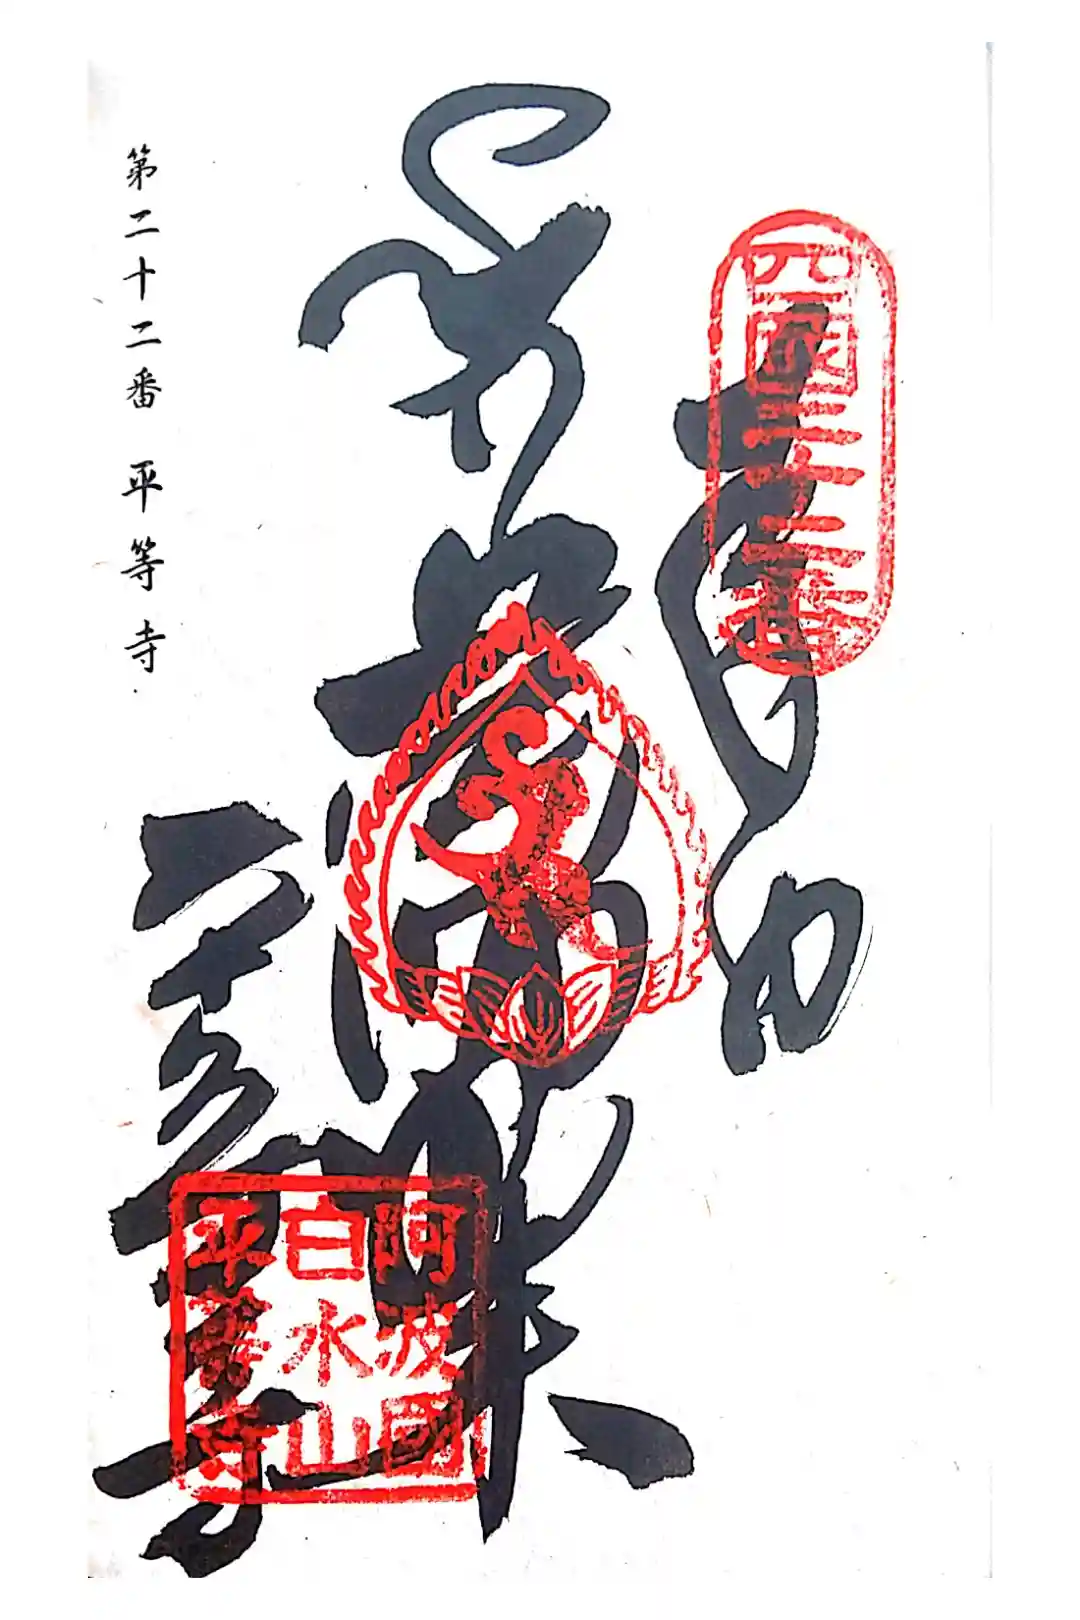 四國二十二番
奉納
阿波國
白水山
平等寺
平等寺
第二十二番 平等寺